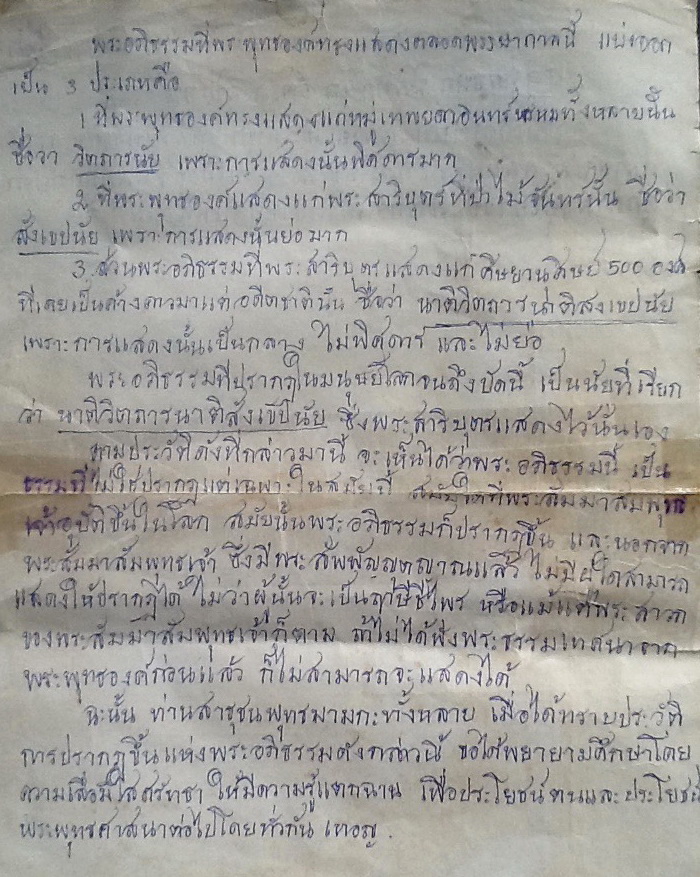 พระอภิธรรมที่พระพุทธองค์ทรงแสดงตลอดพรรษากาลนี้ แบ่งออก
เป็น 3 ประเภทคือ
1 ที่พระพุทธองค์ทรงแสดงแก่หมู่เทพยดาอินทร์พรหมทั้งหลายนั้น
ชื่อว่า วิตถารนัย เพราะการแสดงนั้นพิศดารมาก
2 ที่พระพุทธองค์แสดงแก่พระสาริบุตรที่ป่าไม้จันทร์นั้น ชื่อว่า
สังเขปนัย เพราะการแสดงนั้นย่อมาก
3. ส่วนพระอภิธรรมที่พระสาริบุตรแสดงแก่ศิษยานุศิษย์ 500 องค์
ที่เคยเป็นค้างคาวมาแต่อดีตชาตินั้น ชื่อว่า นาติวิตถารนาติสังเขปนัย
เพราะการแสดงนั้นเป็นกลาง ไม่พิศดาร และไม่ย่อ
พระอภิธรรมที่ปรากฏในมนุษย์โลกจนถึงปัดนี้ เป็นนัยที่เรียก
ว่า นาติวิตถารนาติสังเขปนัย ซึ่งพระสาริบุตรแสดงไว้นั้นเอง
ตามประวัติดังที่กล่าวมานี้ จะเห็นได้ว่าพระอภิธรรมนี้ เป็น
ธรรมที่ไม่ใช่ปรากฏแต่เฉพาะในสมัยนี้ สมัยใดที่พระสัมมาสัมพุทธ
เจ้าอุบัติขึ้นในโลก สมัยนั้นพระอภิธรรมก็ปรากฏขึ้น และนอกจาก
พระสัมมาสัมพุทธเจ้า ซึ่งมีพระสัพพัญญุตญาณแล้ว ไม่มีผู้ใดสามารถ
แสดงให้ปรากฏได้ ไม่ว่าผู้นั้นจะเป็นฤาษีชีไพร หรือแม้แต่พระสาวก
ของพระสัมมาสัมพุทธเจ้าก็ตาม ถ้าไม่ได้ฟังพระธรรมเทศนาจาก
พระพุทธองค์ก่อนแล้ว ก็ไม่สามารถจะแสดงได้
ฉะนั้น ท่านสาธุชนพุทธมามกะทั้งหลาย เมื่อได้ทราบประวัติ
การปรากฏขึ้นแห่งพระอภิธรรมดังกล่าวนี้ ขอได้พยายามศึกษาโดย
ความเลื่อมใสศรัทธา ให้มีความรู้แตกฉาน เพื่อประโยชน์ตนและประโยชน์
พระพุทธศาสนาต่อไปโดยทั่วกัน เทอญ.